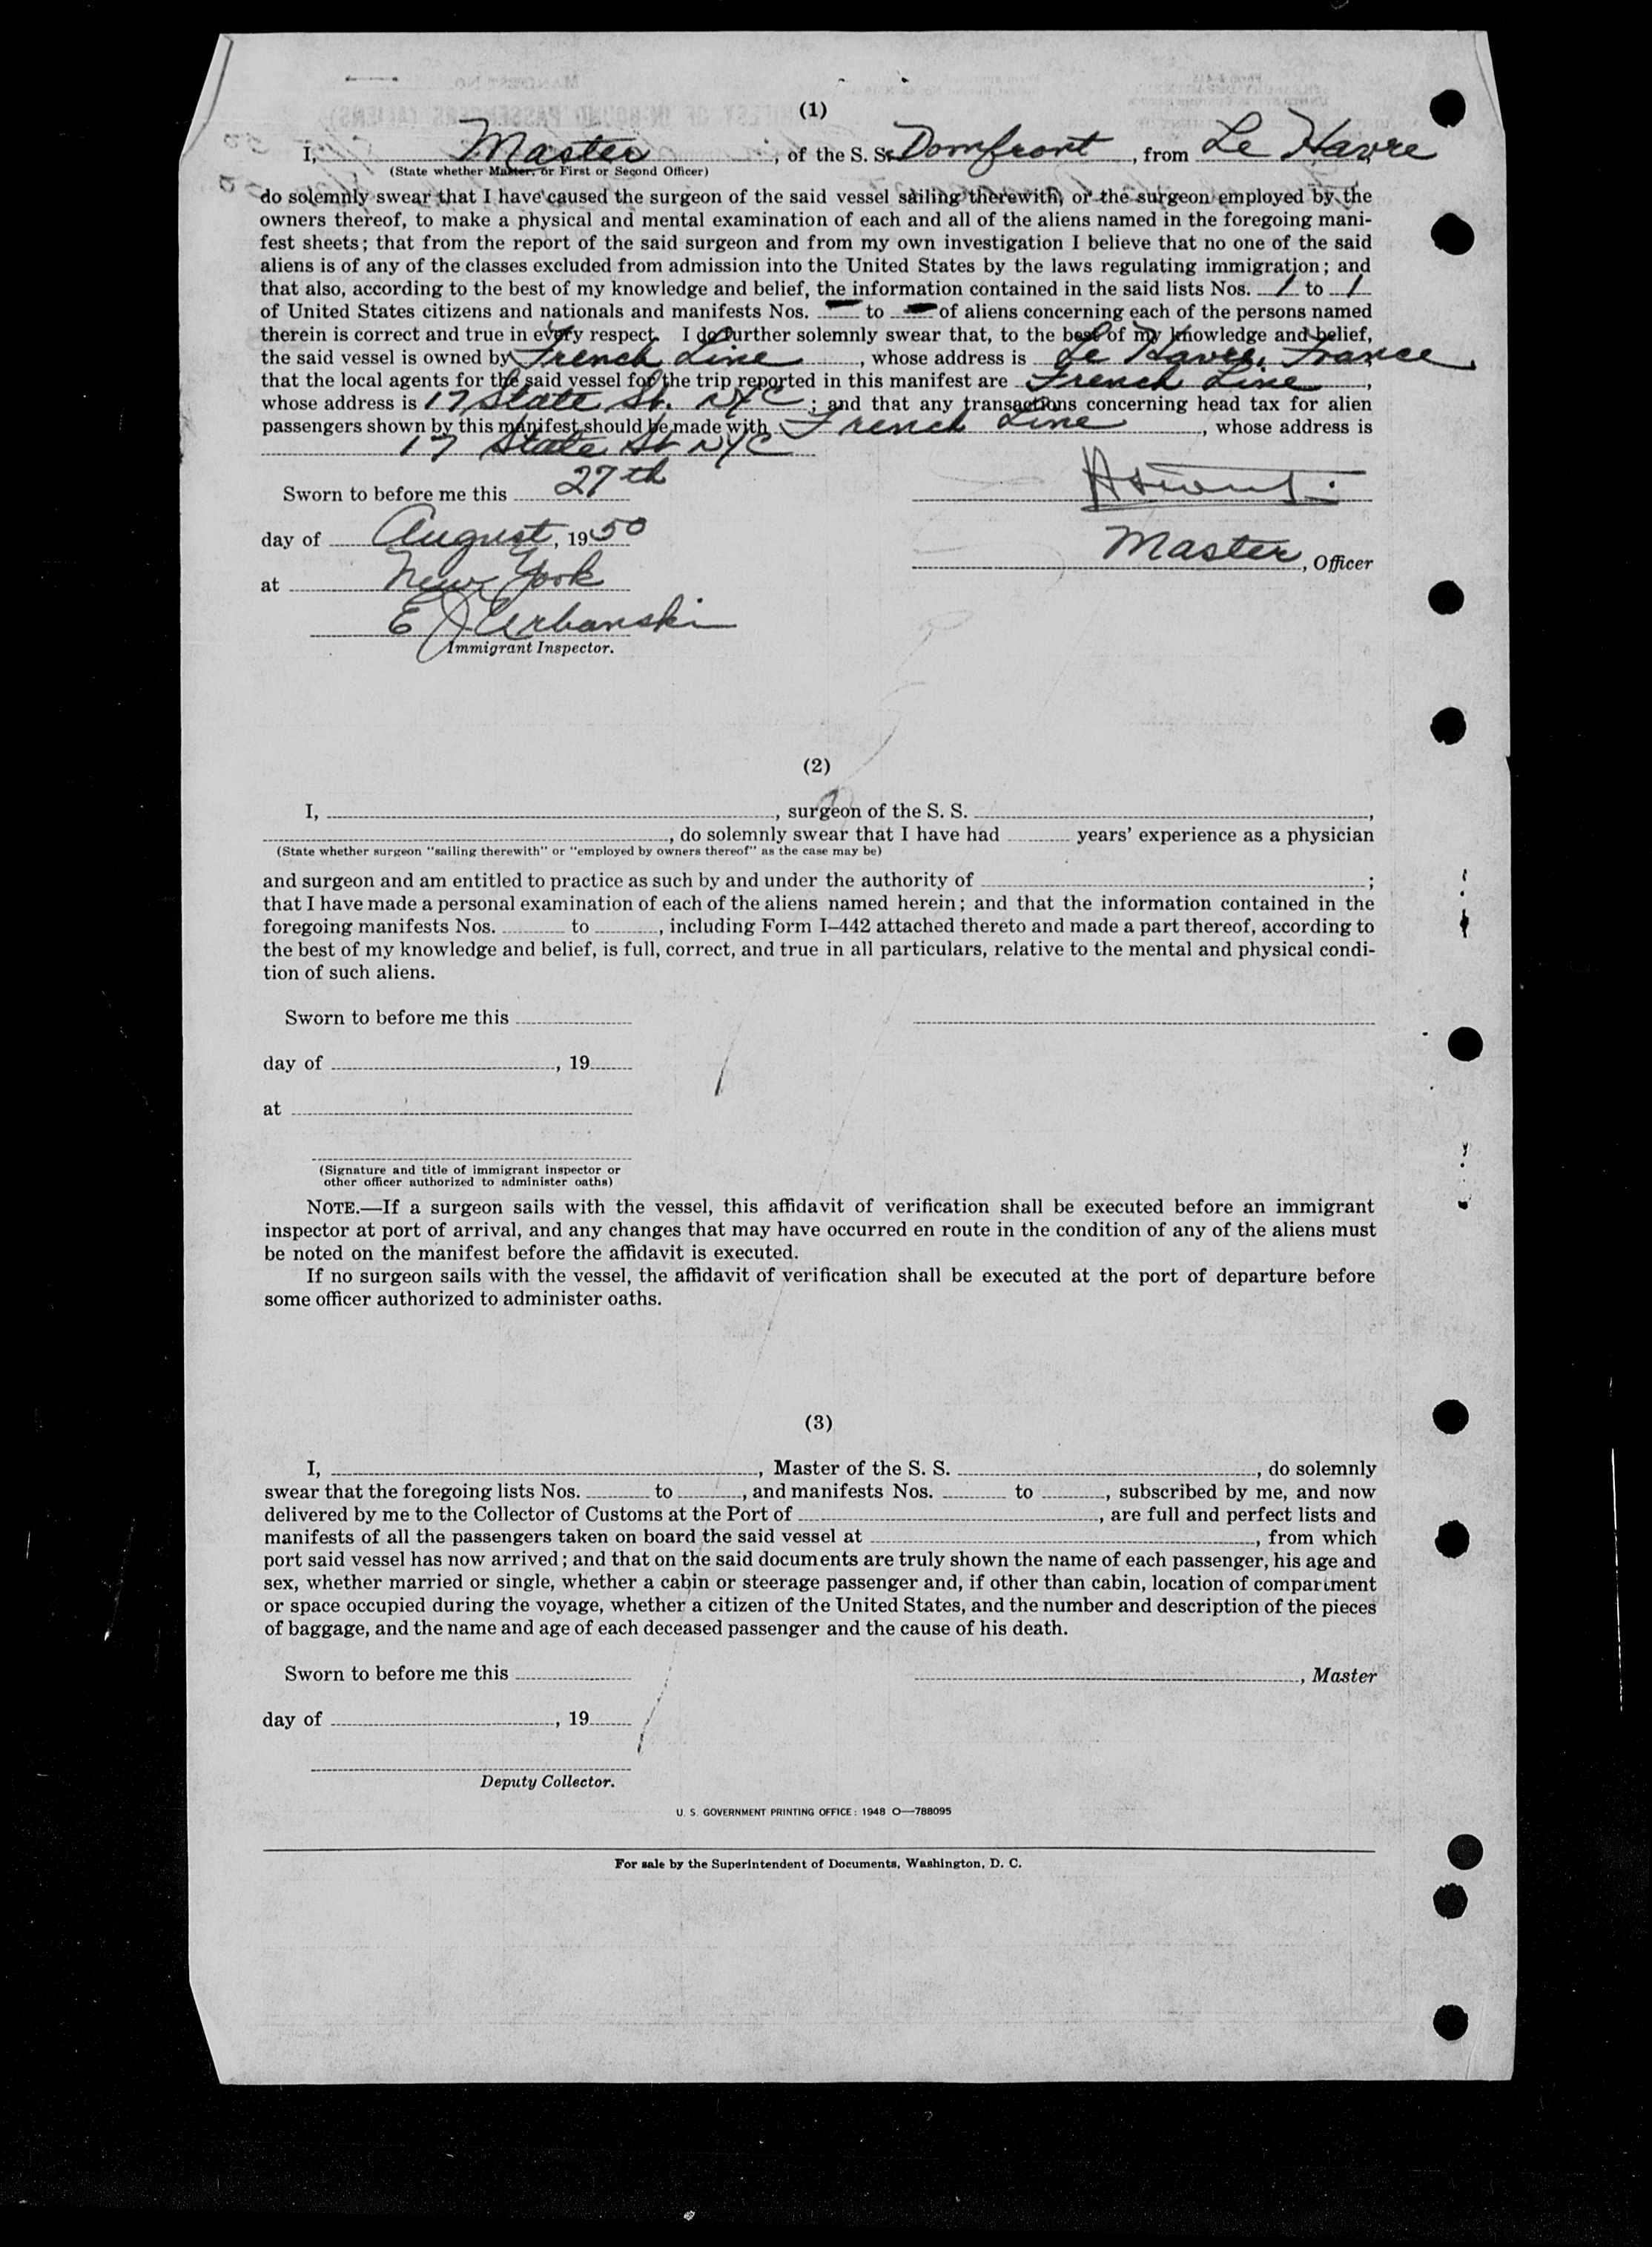 (1)
I, Master, of the S. S. Domfront, from Le Havre
(State whether Master, or First or Second Officer)
do solemnly swear that I have caused the surgeon of the said vessel sailing therewith, or the surgeon employed by the
owners thereof, to make a physical and mental examination of each and all of the aliens named in the foregoing mani-
fest sheets; that from the report of the said surgeon and from my own investigation I believe that no one of the said
aliens is of any of the classes excluded from admission into the United States by the laws regulating immigration; and
that also, according to the best of my knowledge and belief, the information contained in the said lists Nos. 1 to 1
of United States citizens and nationals and manifests Nos. — to — of aliens concerning each of the persons named
therein is correct and true in every respect. I do further solemnly swear that, to the best of my knowledge and belief,
the said vessel is owned by French Line, whose address is Le Havre, France,
that the local agents for the said vessel for the trip reported in this manifest are French Line,
whose address is 17 State St. NYC; and that any transactions concerning head tax for alien
passengers shown by this manifest should be made with French Line, whose address is
17 State St NYC
Sworn to before me this 27th
day of August, 1950
Master, Officer
at New York
E J Urbanski
Immigrant Inspector.
(2)
I, , surgeon of the S. S. ,
, do solemnly swear that I have had years' experience as a physician
(State whether surgeon "sailing therewith" or "employed by owners thereof" as the case may be)
and surgeon and am entitled to practice as such by and under the authority of ;
that I have made a personal examination of each of the aliens named herein; and that the information contained in the
foregoing manifests Nos. to , including Form I-442 attached thereto and made a part thereof, according to
the best of my knowledge and belief, is full, correct, and true in all particulars, relative to the mental and physical condi-
tion of such aliens.
Sworn to before me this
day of , 19
at
(Signature and title of immigrant inspector or
other officer authorized to administer oaths)
NOTE.—If a surgeon sails with the vessel, this affidavit of verification shall be executed before an immigrant
inspector at port of arrival, and any changes that may have occurred en route in the condition of any of the aliens must
be noted on the manifest before the affidavit is executed.
If no surgeon sails with the vessel, the affidavit of verification shall be executed at the port of departure before
some officer authorized to administer oaths.
(3)
I, , Master of the S. S. , do solemnly
swear that the foregoing lists Nos. to , and manifests Nos. to , subscribed by me, and now
delivered by me to the Collector of Customs at the Port of , are full and perfect lists and
manifests of all the passengers taken on board the said vessel at , from which
port said vessel has now arrived; and that on the said documents are truly shown the name of each passenger, his age and
sex, whether married or single, whether a cabin or steerage passenger and, if other than cabin, location of compartment
or space occupied during the voyage, whether a citizen of the United States, and the number and description of the pieces
of baggage, and the name and age of each deceased passenger and the cause of his death.
Sworn to before me this
, Master
day of , 19
Deputy Collector.
U. S. GOVERNMENT PRINTING OFFICE: 1948 O—788095
For sale by the Superintendent of Documents, Washington, D. C.